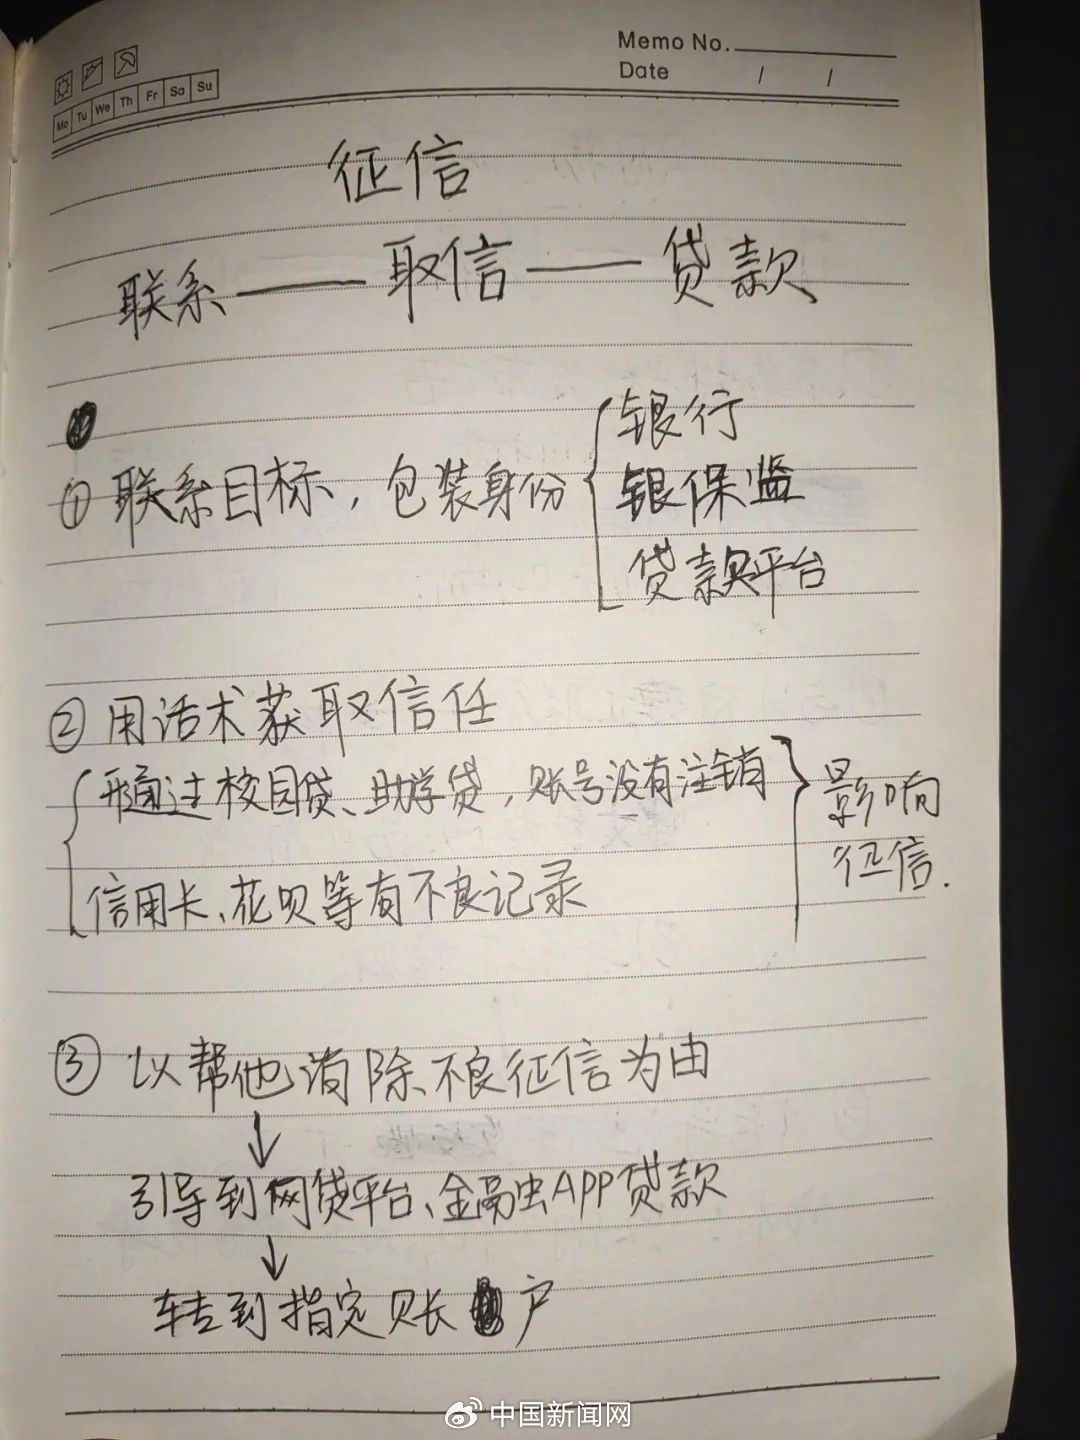 Memo No.
Date / /
Mo Tu We Th Fr Sa Su
征信
联系——取信——贷款
①联系目标，包装身份
银行
银保监
贷款平台
②用话术获取信任
通过校园贷、助学贷，账号没有注销
信用卡、花呗等有不良记录
影响
征信.
③以帮他消除不良征信为由
↓
引导到网贷平台、金融APP贷款
↓
转到指定账户
中国新闻网